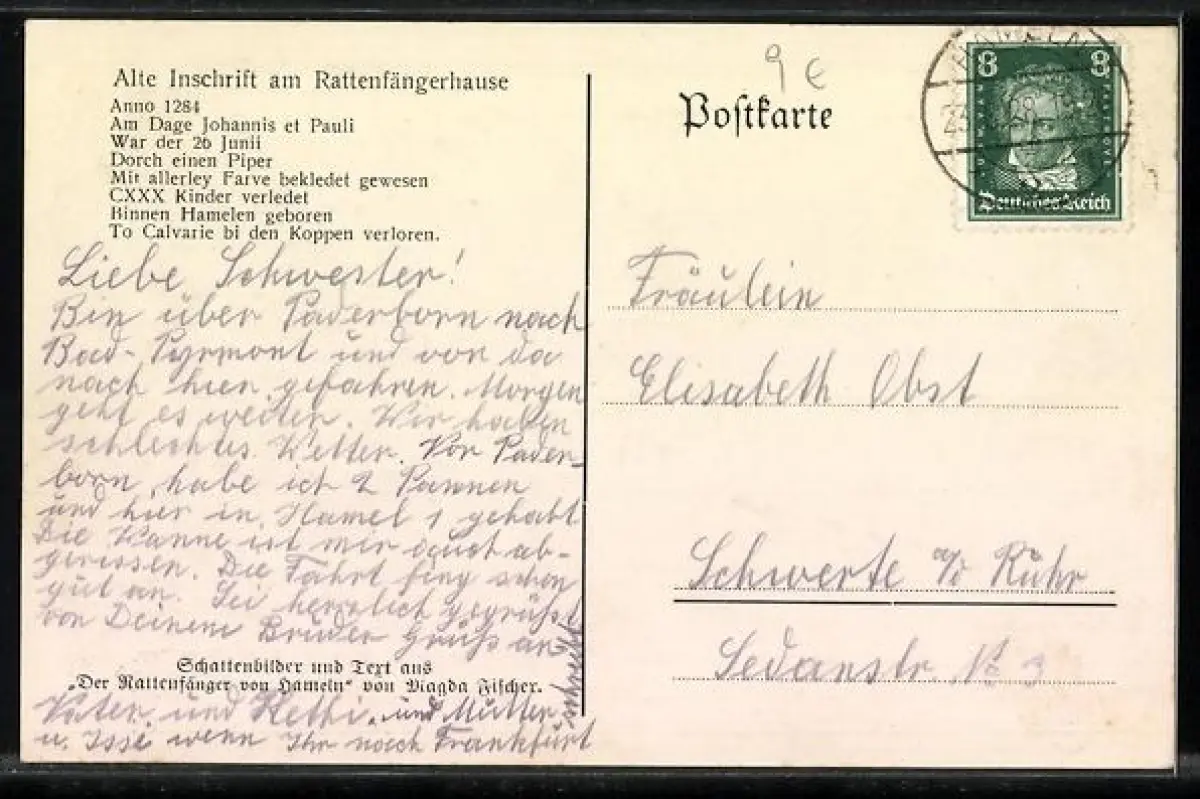 Alte Inschrift am Rattenfängerhause
Anno 1284
Am Dage Johannis et Pauli
War der 26 Junii
Dorch einen Piper
Mit allerley Farve bekledet gewesen
CXXX Kinder verledet
Binnen Hamelen geboren
To Calvarie bi den Koppen verloren.
Liebe Schwester!
Bin über Paderborn nach
Bad-Pyrmont und von da
nach hier gefahren. Morgen
geht es weiter. Wir haben
schlechtes Wetter. Von Pader-
born, habe ich 2 Pannen
und hier in Hamel 1 gehabt
Die Kanne ist mir ab-
gerissen. Die Fahrt fing schon
gut an. Sei herzlich gegrüßt
von Deinem Bruder Gruß an
Schattenbilder und Text aus
"Der Rattenfänger von Hameln" von Magda Fischer.
Vater und und Mutter
u. Issi wenn Ihr nach Frankfurt
schreibt
9 €
Postkarte
HAMELN
8 8
Deutsches Reich
Fräulein
Elisabeth Obst
Schwerte a/d Ruhr
Sedanstr. № 3